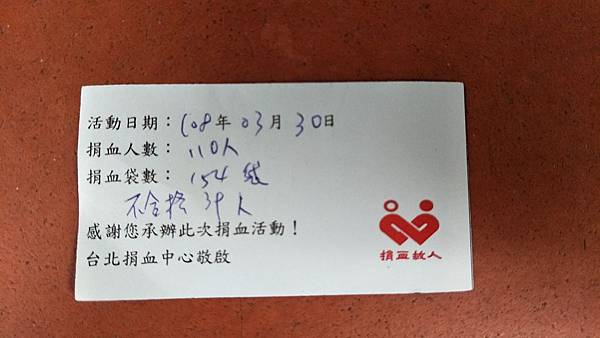 活動日期：108年 03月 30日
捐血人數：110人
捐血袋數：154 袋
不合格 39人
感謝您承辦此次捐血活動！
台北捐血中心敬啟
捐血救人